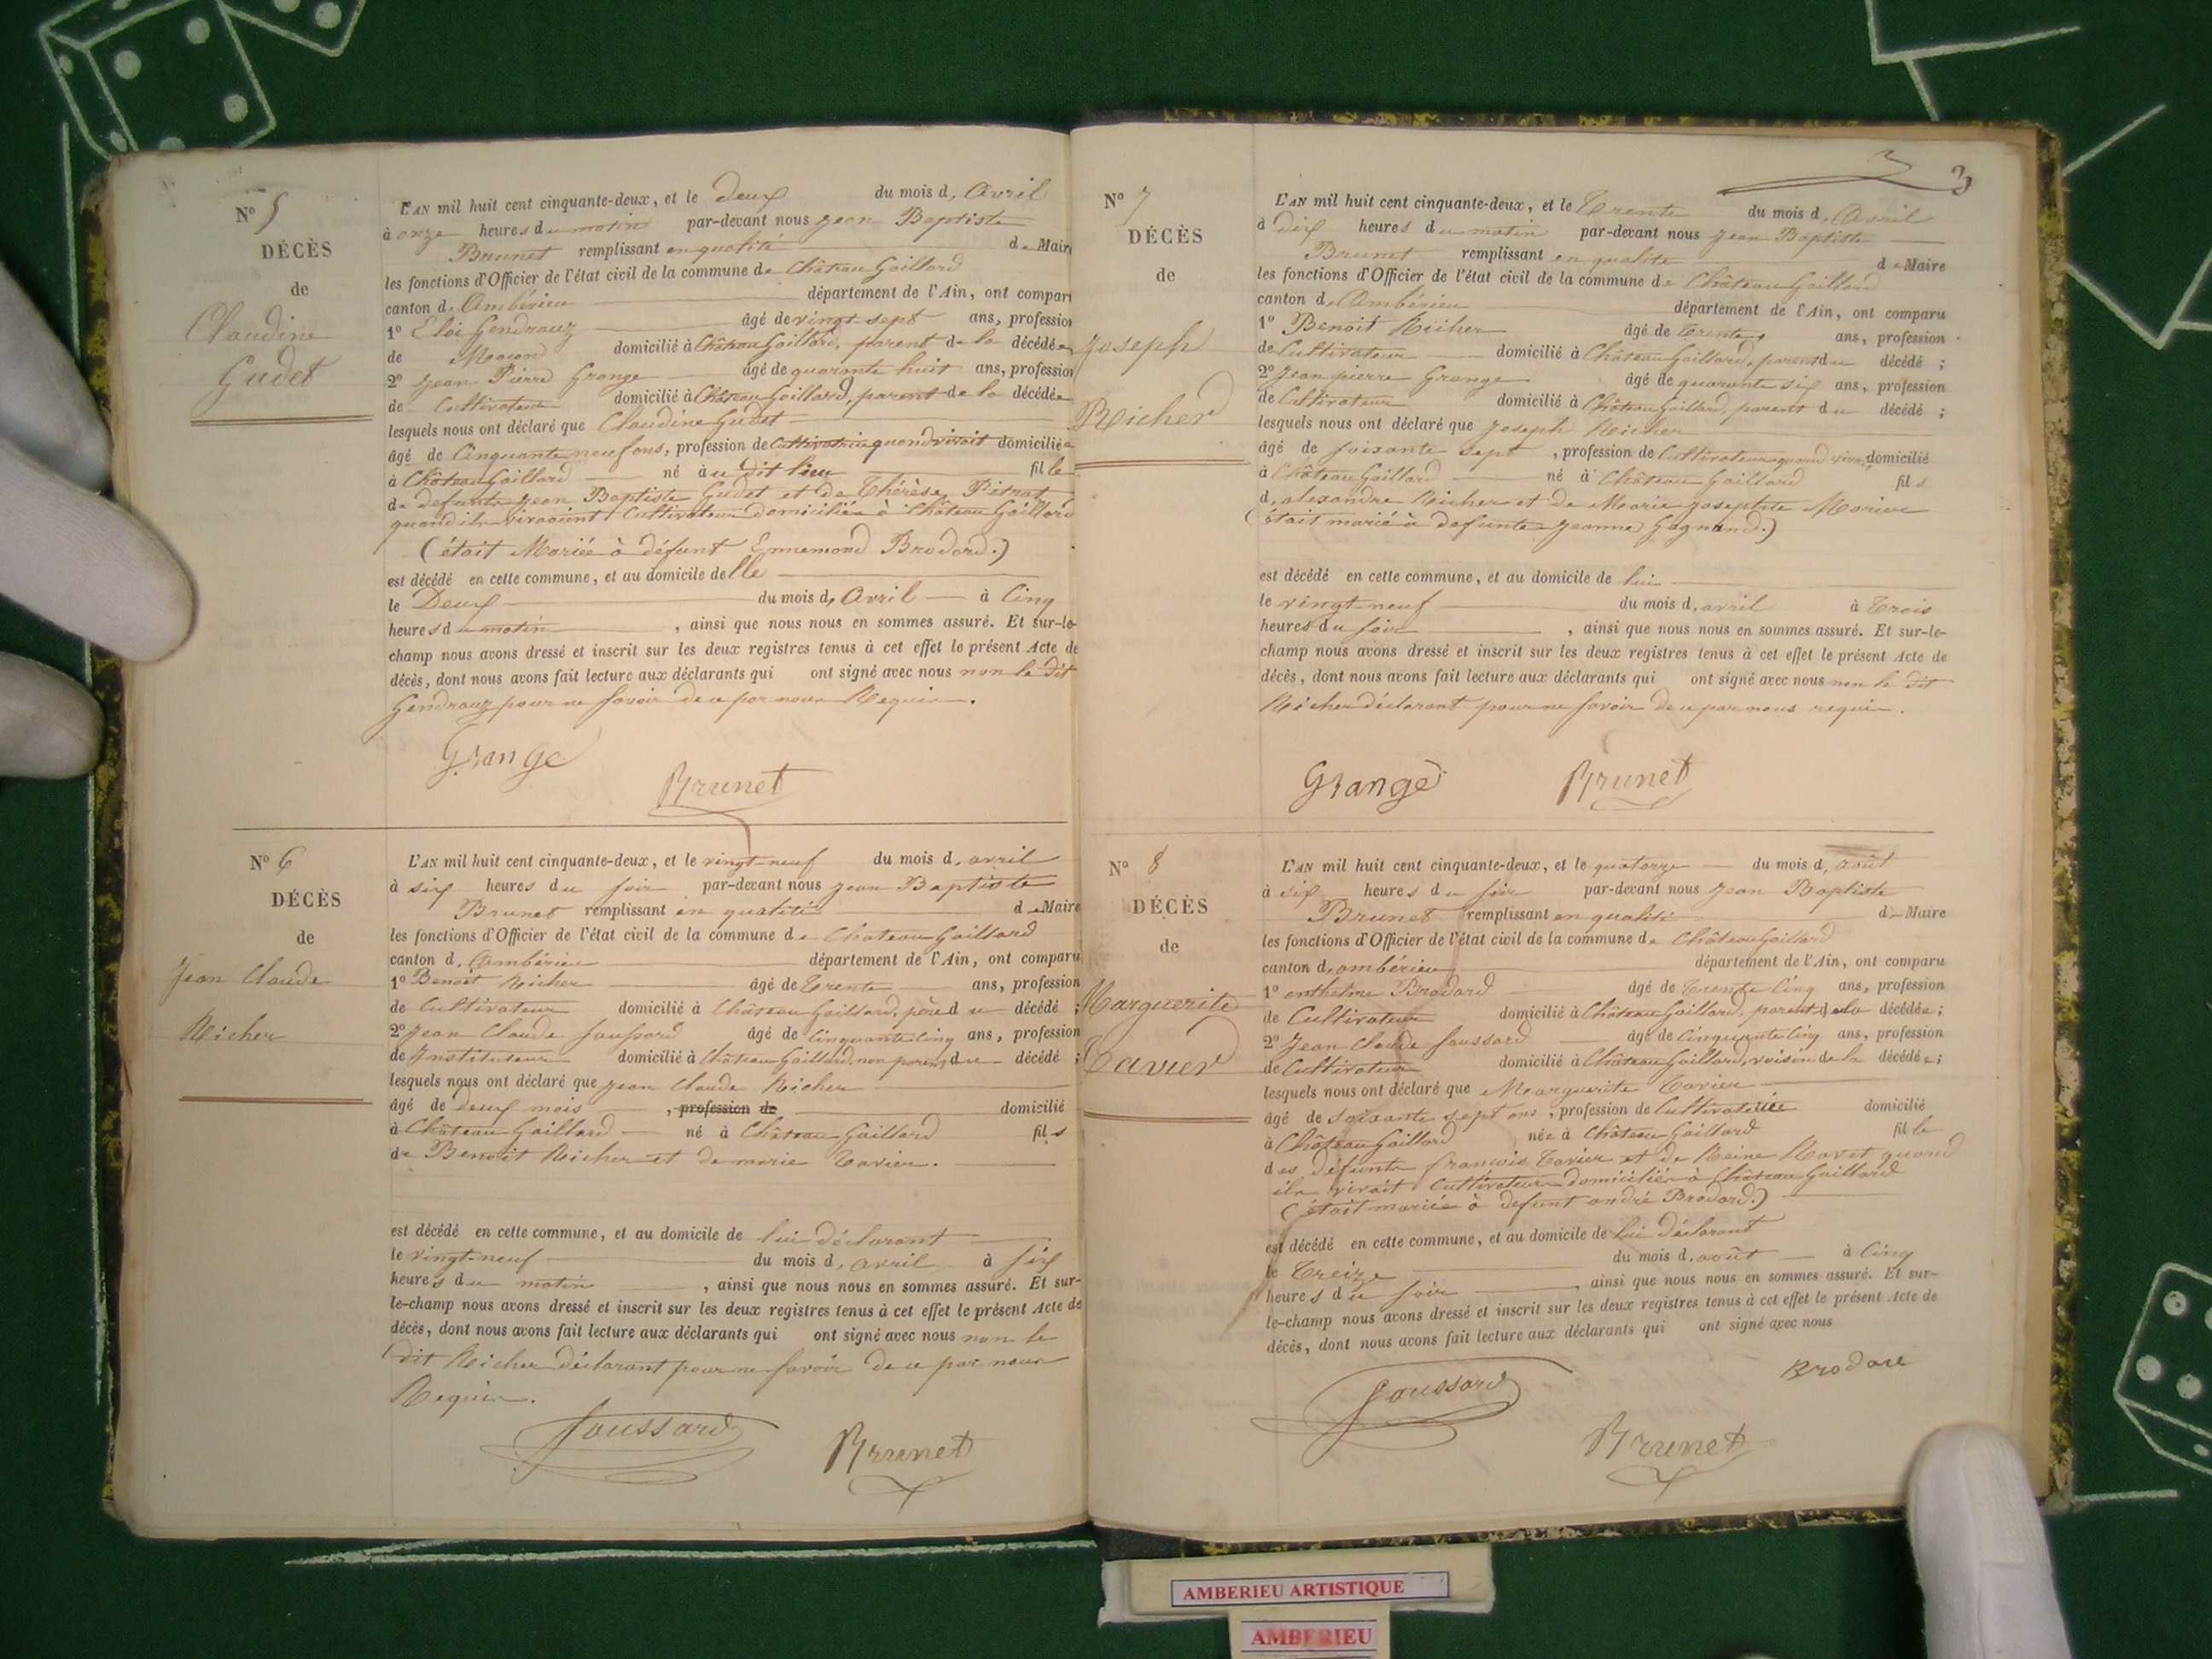 N° 5
DÉCÈS
de
Claudine
Gudet
L'AN mil huit cent cinquante-deux, et le deux du mois d, Avril
à onze heures du matin par-devant nous Jean Baptiste
Brunet remplissant en qualité de Maire
les fonctions d'Officier de l'état civil de la commune de Château Gaillard
canton d, Ambérieu département de l'Ain, ont comparu
1° Eloi Gendrauz âgé de vingt-sept ans, profession
de Maçon domicilié à Château Gaillard, parent de la décédée
2° Jean Pierre Grange âgé de quarante huit ans, profession
de Cultivateur domicilié à Château Gaillard, parent de la décédée
lesquels nous ont déclaré que Claudine Gudet
âgé de Cinquante neuf ans, profession de Cultivatrice quand vivait domiciliée
à Château Gaillard né à u dit lieu fille
de defunts Jean Baptiste Gudet et de Thérèse Pitrat
quand ils vivaient Cultivateurs domiciliés à Château Gaillard
(était Mariée à défunt Ennemond Brodard.)
est décédé en cette commune, et au domicile delle
le Deux du mois d, Avril à Cinq
heures du matin, ainsi que nous nous en sommes assuré. Et sur-le-
champ nous avons dressé et inscrit sur les deux registres tenus à cet effet le présent Acte de
décès, dont nous avons fait lecture aux déclarants qui ont signé avec nous non le dit
Gendrauz pour ne savoir de ce par nous Requis.
Grange
Brunet
N° 6
DÉCÈS
de
Jean Claude
Richer
L'AN mil huit cent cinquante-deux, et le vingt-neuf du mois d, avril
à six heures du soir par-devant nous Jean Baptiste
Brunet remplissant en qualité de Maire
les fonctions d'Officier de l'état civil de la commune de Chateau Gaillard
canton d, Ambérieu département de l'Ain, ont comparu
1° Benoit Richer âgé de Trente ans, profession
de Cultivateur domicilié à Château Gaillard, père du décédé ;
2° Jean Claude Joussard âgé de Cinquante Cinq ans, profession
de Instituteur domicilié à Château Gaillard, non parent du décédé ;
lesquels nous ont déclaré que Jean Claude Richer
âgé de deux mois, profession de domicilié
à Château Gaillard né à Château Gaillard fils
de Benoit Richer et de marie Tavier.
est décédé en cette commune, et au domicile de lui déclarant
le vingt-neuf du mois d, avril à six
heures du matin, ainsi que nous nous en sommes assuré. Et sur-
le-champ nous avons dressé et inscrit sur les deux registres tenus à cet effet le présent Acte de
décès, dont nous avons fait lecture aux déclarants qui ont signé avec nous non le
dit Richer déclarant pour ne savoir de ce par nous
Requis.
Joussard
Brunet
3
N° 7
DÉCÈS
de
Joseph
Richer
L'AN mil huit cent cinquante-deux, et le Trente du mois d, Avril
à dix heures du matin par-devant nous Jean Baptiste
Brunet remplissant en qualité de Maire
les fonctions d'Officier de l'état civil de la commune de Château Gaillard
canton d, Ambérieu département de l'Ain, ont comparu
1° Benoit Richer âgé de trente ans, profession
de Cultivateur domicilié à Château Gaillard, parent du décédé ;
2° Jean pierre Grange âgé de quarante six ans, profession
de Cultivateur domicilié à Château Gaillard, parent du décédé ;
lesquels nous ont déclaré que Joseph Richer
âgé de soixante sept, profession de Cultivateur quand vivait domicilié
à Château Gaillard né à Château Gaillard fils
d, alexandre Richer et de Marie Josephte
(était marié à defunte Jeanne Gagnand.)
est décédé en cette commune, et au domicile de lui
le vingt-neuf du mois d, avril à Trois
heures du soir, ainsi que nous nous en sommes assuré. Et sur-le-
champ nous avons dressé et inscrit sur les deux registres tenus à cet effet le présent Acte de
décès, dont nous avons fait lecture aux déclarants qui ont signé avec nous non le dit
Richer déclarant pour ne savoir de ce par nous requis.
Grange
Brunet
N° 8
DÉCÈS
de
Marguerite
Tavier
L'AN mil huit cent cinquante-deux, et le quatorze du mois d, août
à six heures du soir par-devant nous Jean Baptiste
Brunet remplissant en qualité de Maire
les fonctions d'Officier de l'état civil de la commune de Château Gaillard
canton d, ambérieu département de l'Ain, ont comparu
1° anthelme Brodard âgé de Trente Cinq ans, profession
de Cultivateur domicilié à Château Gaillard, parent de la décédée ;
2° Jean Claude Joussard âgé de Cinquante Cinq ans, profession
de Cultivateur domicilié à Château Gaillard, voisin de la décédée ;
lesquels nous ont déclaré que Marguerite Tavier
âgé de Soixante sept ans, profession de Cultivatrice domicilié
à Château Gaillard née à Château Gaillard fille
des défunts françois Tavier et de Reine Ravet quand
ils vivait Cultivateurs domiciliés à Château Gaillard
(était mariée à defunt andré Brodard.)
est décédé en cette commune, et au domicile de lui déclarant
le Treize du mois d, août à Cinq
heures du soir, ainsi que nous nous en sommes assuré. Et sur-
le-champ nous avons dressé et inscrit sur les deux registres tenus à cet effet le présent Acte de
décès, dont nous avons fait lecture aux déclarants qui ont signé avec nous
Brodare
Joussard
Brunet
AMBERIEU ARTISTIQUE
AMBERIEU